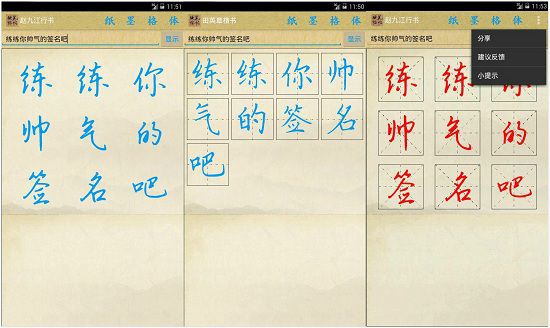 11:51
赵九江行书 纸 墨 格 体
练练你帅气的签名吧 显示
练 练 你
帅 气 的
签 名 吧
11:50
田英章楷书 纸 墨 格 体
练练你帅气的签名吧 显示
练 练 你 帅
气 的 签 名
吧
11:53
赵九江行书 纸 墨 格 体
练练你帅气的签名吧
分享
建议反馈
小提示
练 练 你
帅 气 的
签 名 吧